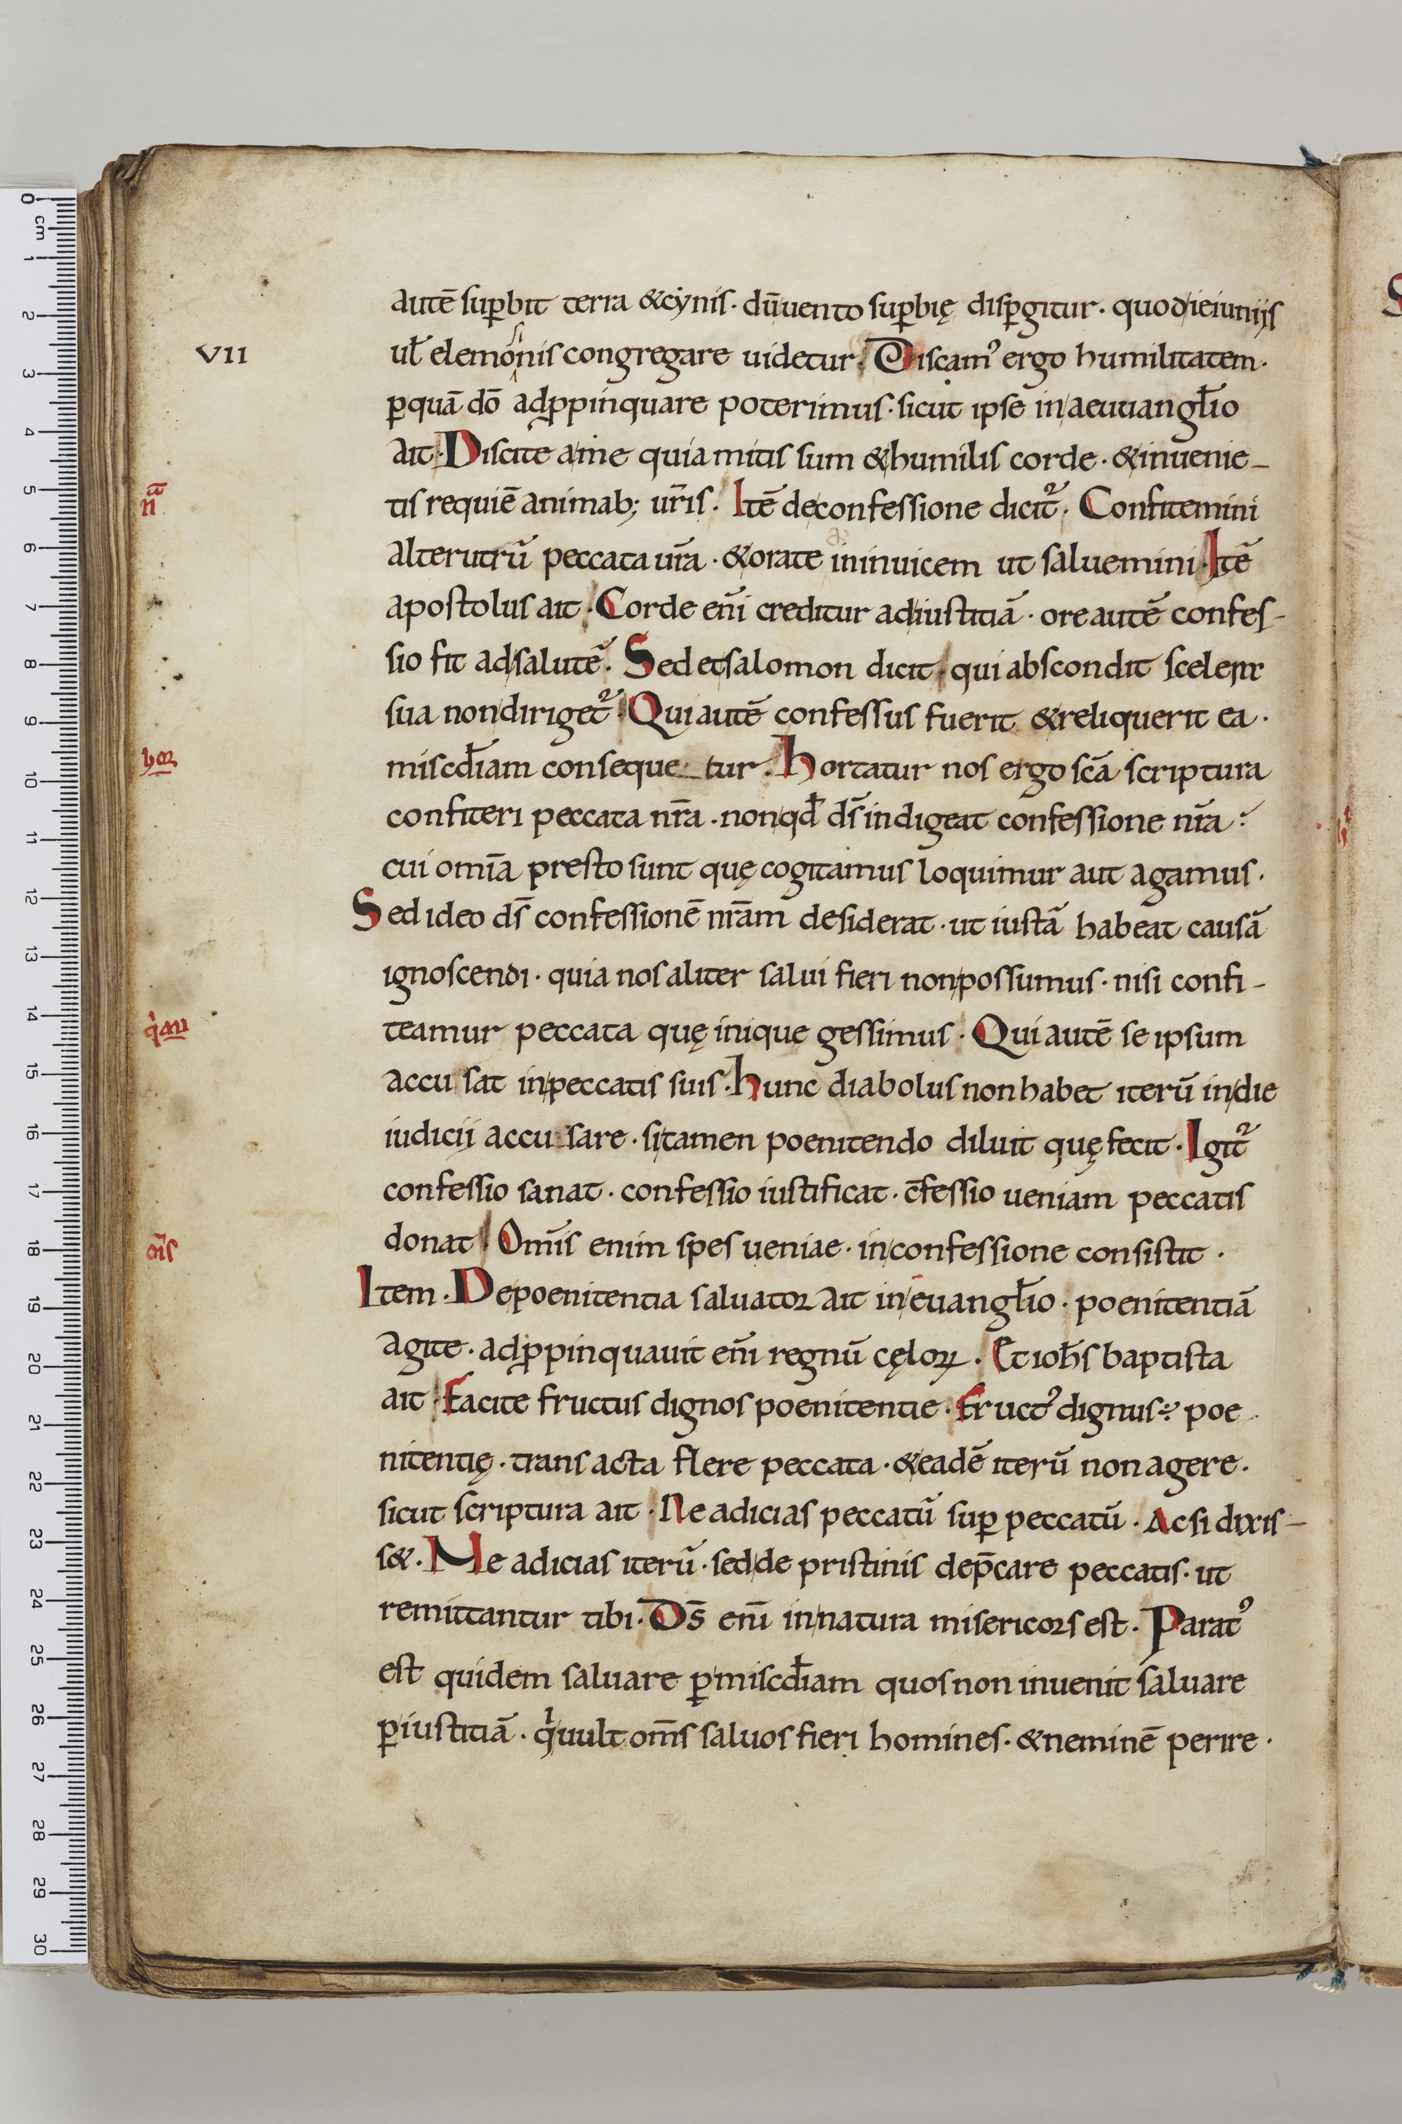 autē sup̄bit terra &cẏnis · dū uento sup̄bię disp̄gitur · quod ieiuniis
VII
ul̄ elemosinis congregare uidetur · Discam᾽ ergo humilitatem ·
ꝑquā dō adꝓpinquare poterimus · sicut ipse in aeuuangl̄io
ait · Discite a me quia mitis sum &humilis corde · &inuenie-
n̄a
tis requiē animab; ur̄is · Itē de confessione dicit᷑ · Confitemini
alterutrū peccata ur̄a · &orate in inuicem ut saluemini · Itē
apostolus ait · Corde en̄i creditur ad iustitiā · ore autē confes-
sio fit ad salutē · Sed et salomon dicit · qui abscondit scelera
sua non diriget᷑ · Qui autē confessus fuerit &reliquerit ea ·
hoꝛ
miscd̄iam conseque_tur · hortatur nos ergo sc̄a scriptura
confiteri peccata nr̄a · non qd̄ ds̄ indigeat confessione nr̄a :
cui om̄ia presto sunt quę cogitamus loquimur aut agamus ·
Sed ideo ds̄ confessionē nr̄am desiderat · ut iustā habeat causā
ignoscendi · quia nos aliter salui fieri non possumus · nisi confi-
qͥ au
teamur peccata quę inique gessimus · Qui autē se ipsum
accusat in peccatis suis · hunc diabolus non habet iterū in die
iudicii accusare · si tamen poenitendo diluit quę fecit · Igit᷑
confessio sanat · confessio iustificat · c̄fessio ueniam peccatis
om̄s
donat · Om̄is enim spes ueniae · in confessione consistit ·
Item · De poenitentia saluatoꝛ ait in euangl̄io · poenitentiā
agite · adꝓpinquauit en̄i regnū cęloꝝ · Et ioh̄s baptista
ait · Facite fructus dignos poenitentie · Fruct᾽ dignus ÷ poe-
nitentię · transacta flere peccata · &eadē iterū non agere ·
sicut scriptura ait · Ne adicias peccatū suꝑ peccatū · Ac si dixis-
s& · Ne adicias iterū · sed de pristinis dep̄care peccatis · ut
remittantur tibi · Ds̄ enī in natura misericoꝛs est · Parat᾽
est quidem saluare ꝑ miscd̄iam quos non inuenit saluare
ꝑ iustitiā · qͥ uult om̄s saluos fieri homines · &neminē perire ·